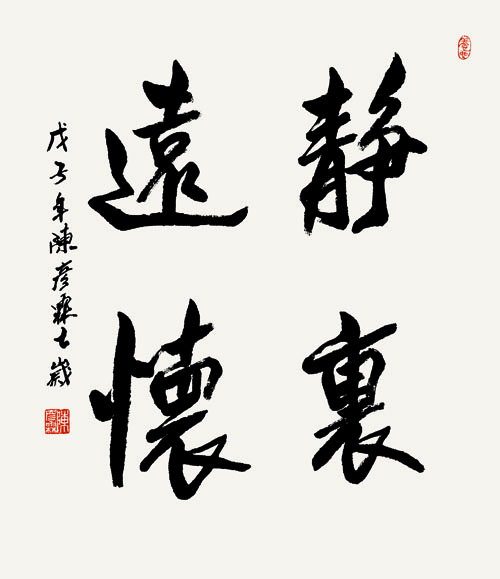 靜裏
遠懷
戊子年陳彥霖七歲